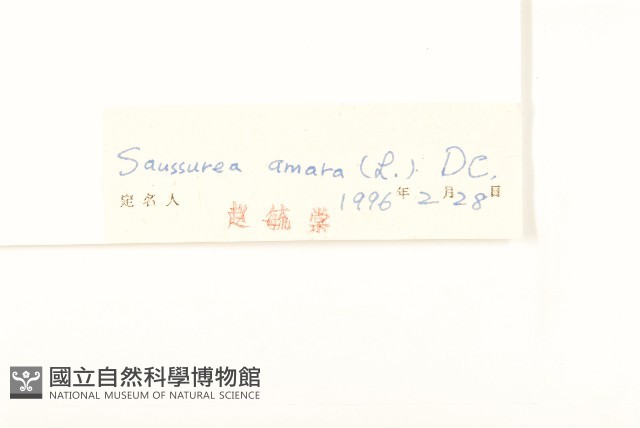 Saussurea amara (L.) DC.
定名人 1996年2月28日
赵毓棠
國立自然科學博物館
NATIONAL MUSEUM OF NATURAL SCIENCE